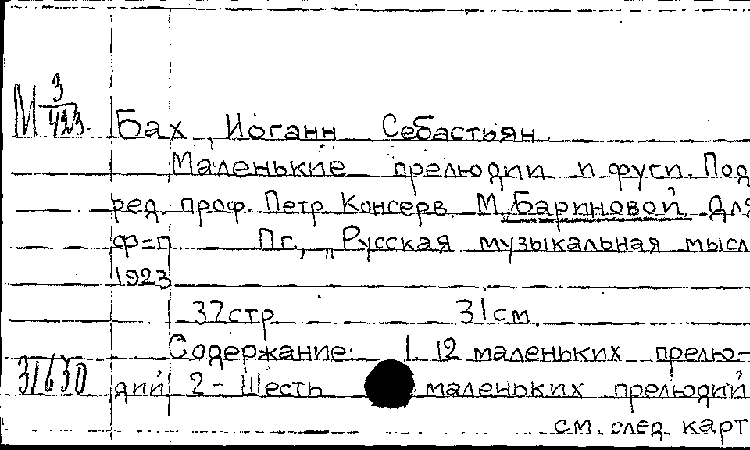 М 3/423. Бах, Иоганн Себастьян.
Маленькие прелюдии и фуги. Под
ред. проф. Петр. Консерв. М. Бариновой. Для
ф=п Пг., „Русская музыкальная мысл
1923
32стр. 31см.
Содержание: 1. 12 маленьких прелю-
31630 дий 2- Шесть маленьких прелюдий
см. след. карт